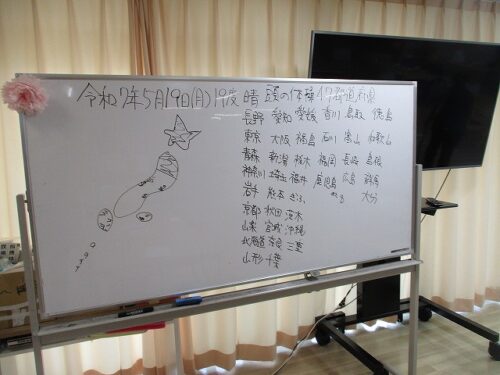 令和7年5月19日(月)19度 晴 頭の体操 47都道府県
長野 愛知 愛媛 香川 鳥取 徳島
東京 大阪 福島 石川 富山 和歌山
青森 新潟 栃木 福岡 長崎 島根
神奈川 埼玉 福井 鹿児島 広島 群馬
岩手 熊本 大分
京都 秋田
山梨 宮城 沖縄
北海道 奈良 三重
山形 千葉